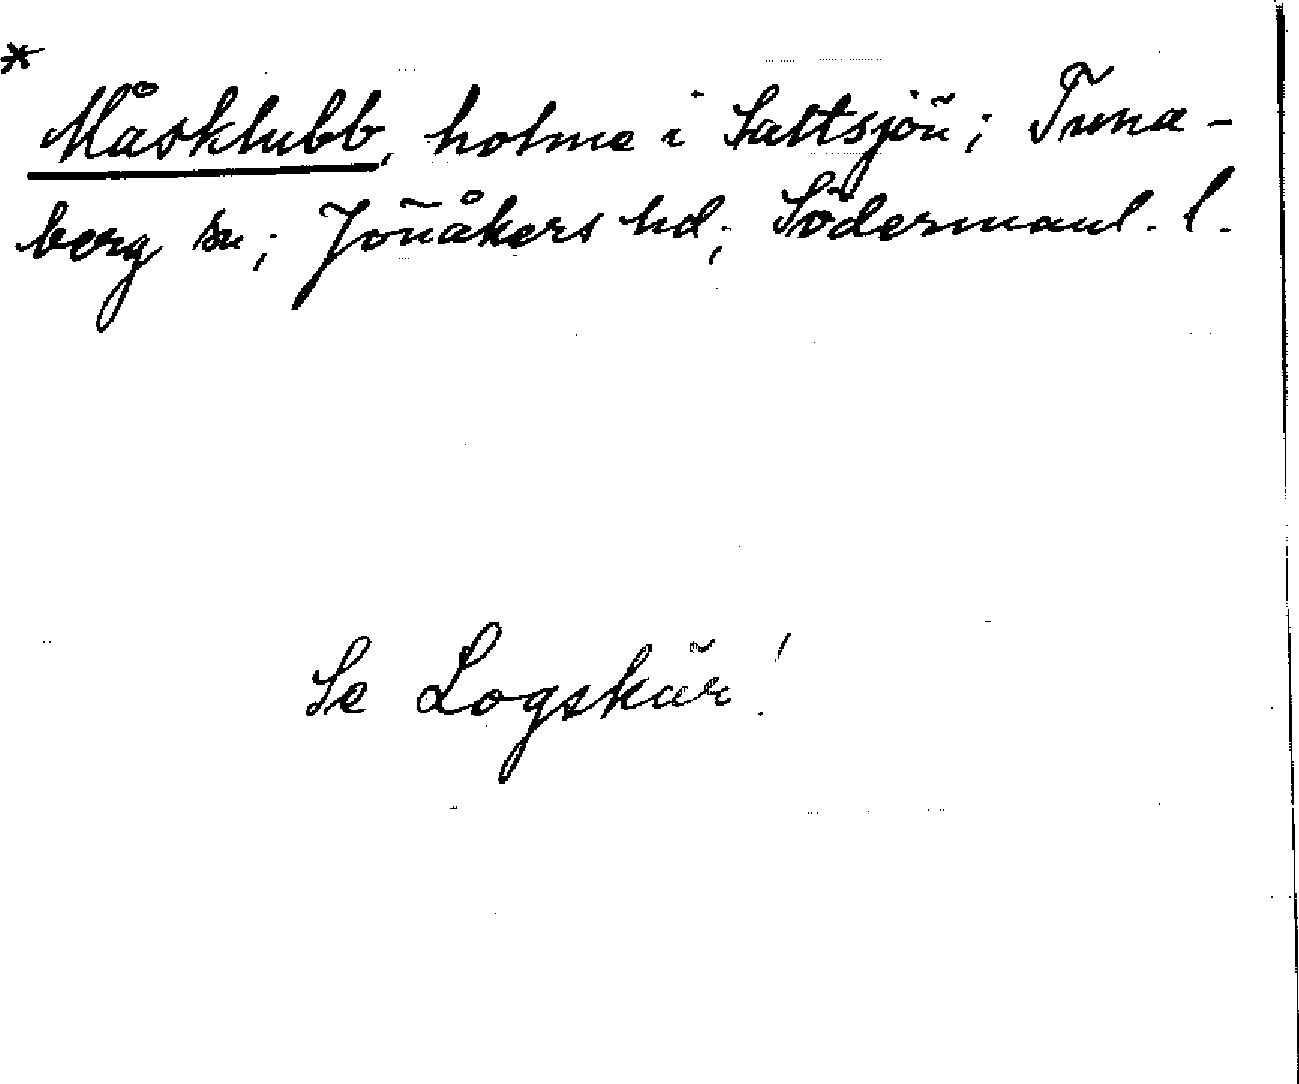 *
Måsklubb, holme i Saltsjön; Tuna-
berg sn; Jönåkers hd; Södermanl. l.
Se Logskär!